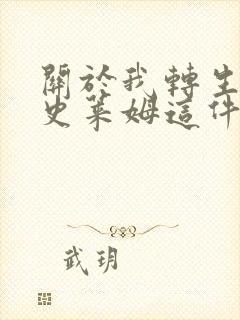 關於我轉生
史萊姆這件
武玥